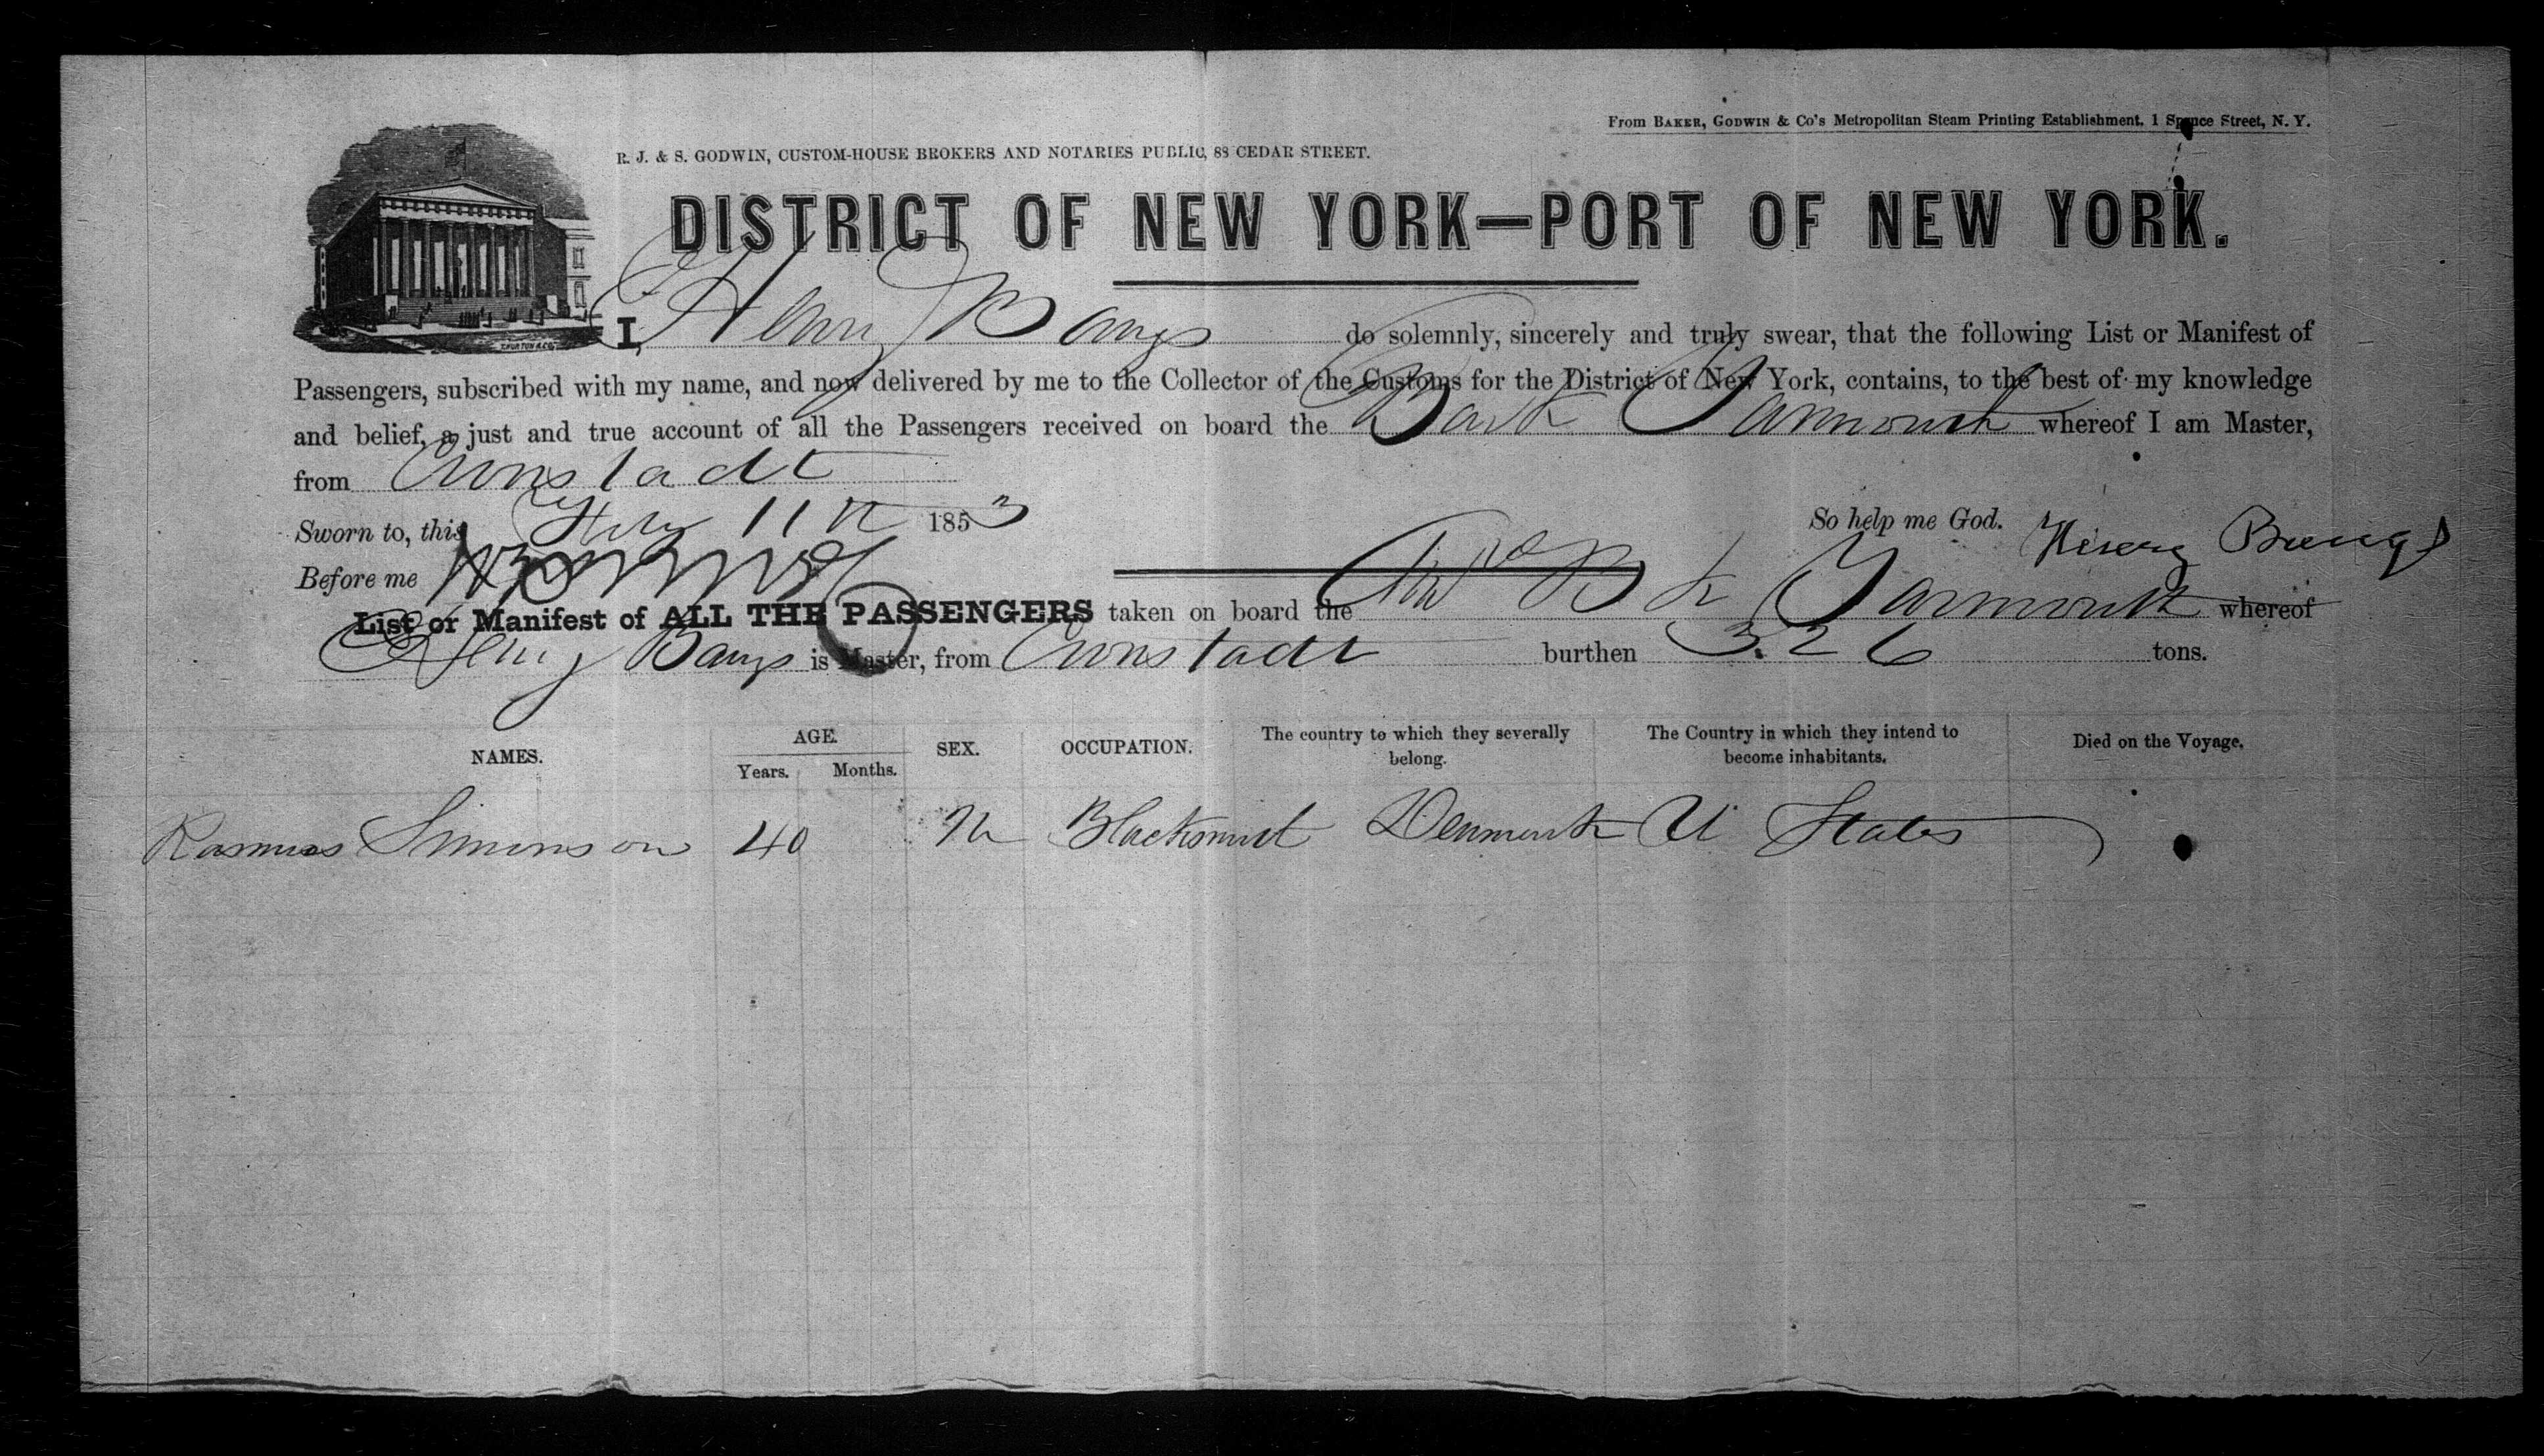 From BAKER, GODWIN & Co's Metropolitan Steam Printing Establishment, 1 Spruce Street, N. Y.
R. J. & S. GODWIN, CUSTOM-HOUSE BROKERS AND NOTARIES PUBLIC, 88 CEDAR STREET.
DISTRICT OF NEW YORK—PORT OF NEW YORK.
I, Henry Bangs do solemnly, sincerely and truly swear, that the following List or Manifest of
Passengers, subscribed with my name, and now delivered by me to the Collector of the Customs for the District of New York, contains, to the best of my knowledge
and belief, a just and true account of all the Passengers received on board the Bark Yarmouth whereof I am Master,
from Cronstadt
Sworn to, this 11th 1853 So help me God. Henry Bangs
Before me
List or Manifest of ALL THE PASSENGERS taken on board the Bk Yarmouth whereof
Henry Bangs is Master, from Cronstadt burthen 326 tons.
NAMES. AGE. Years. Months. SEX. OCCUPATION. The country to which they severally belong. The Country in which they intend to become inhabitants. Died on the Voyage.
Rasmus Simonson 40 M Blacksmith Denmark U States